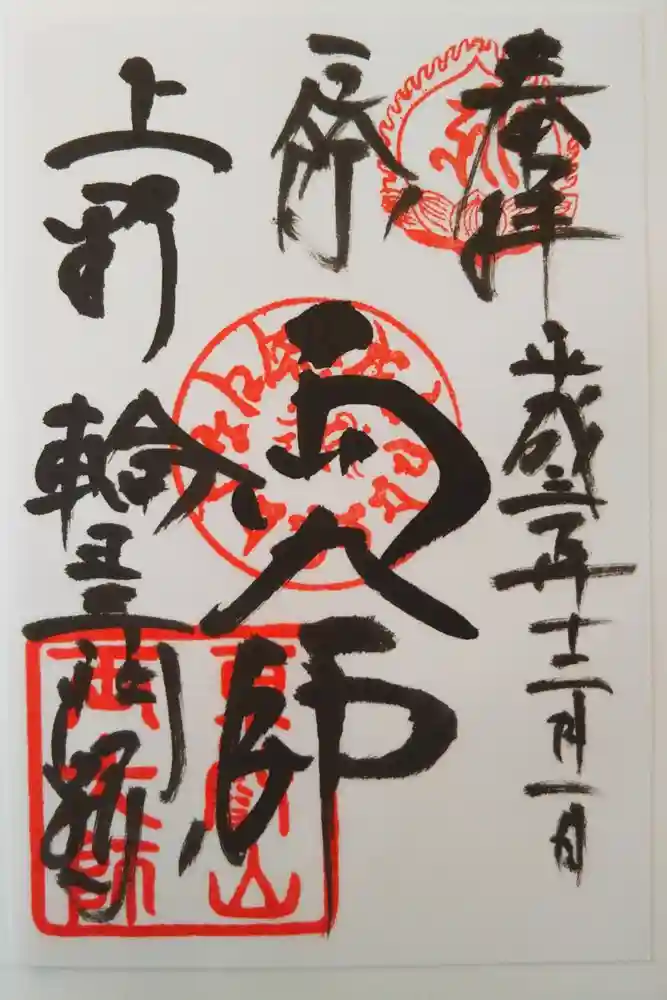 奉拝 平成三年十二月一日
両大師
上野 輪王寺門跡
東叡山
両大師